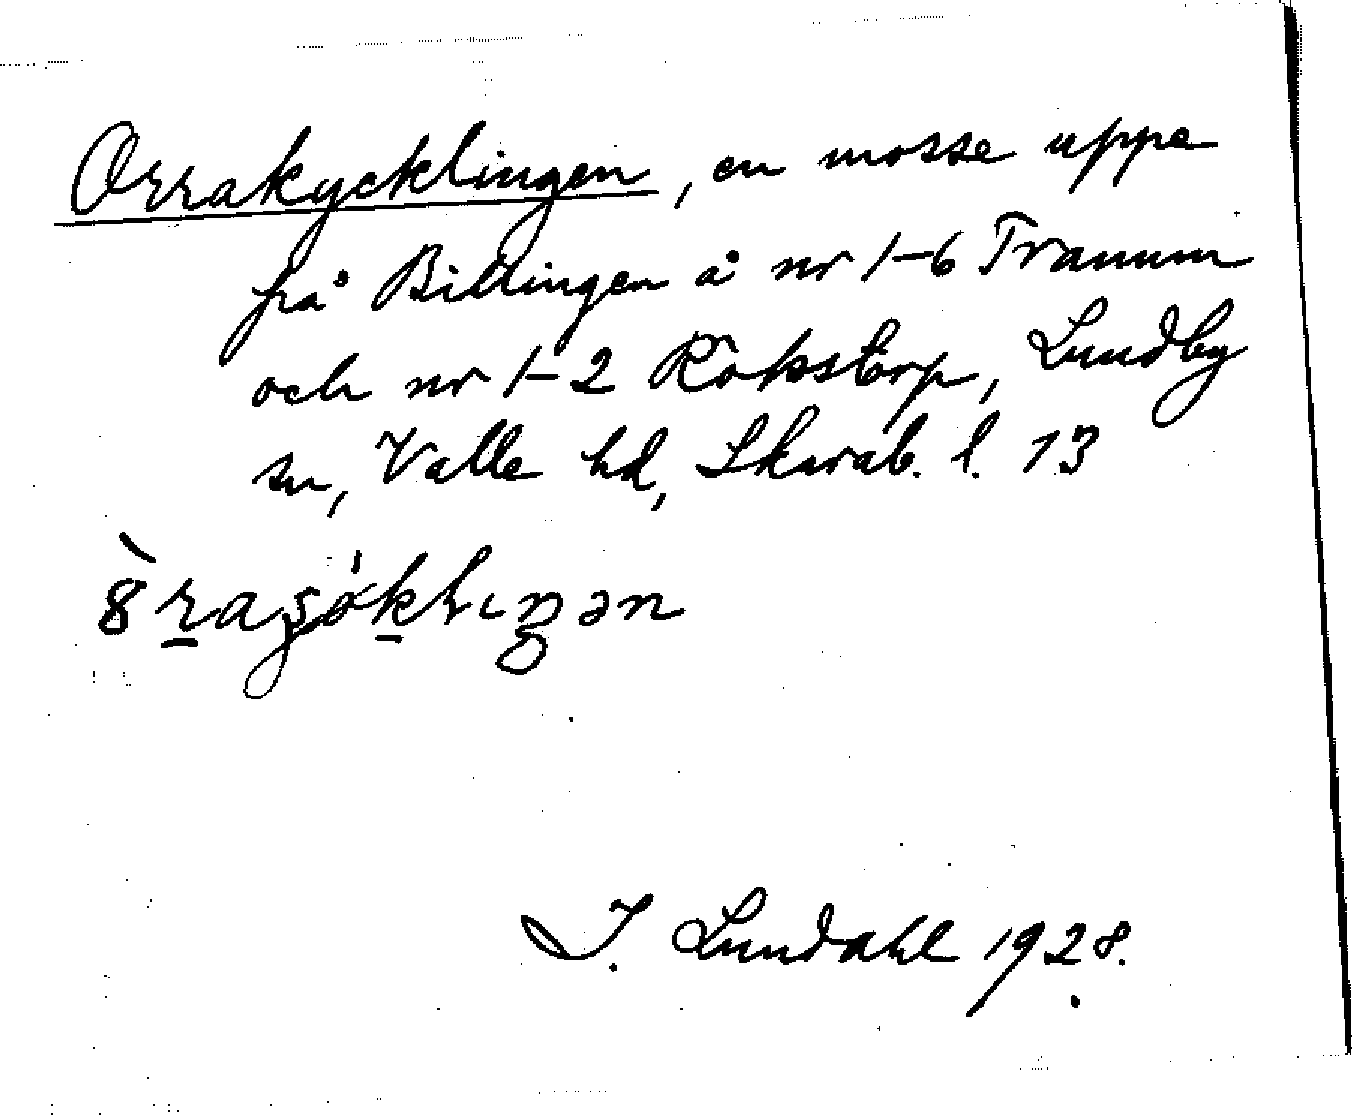 Orrakycklingen, en mosse uppe
på Billingen å nr 1-6 Tranum
och nr 1-2 Rökstorp, Lundby
sn, Valle hd, Skarab. l. 13
I. Lundahl 1928.